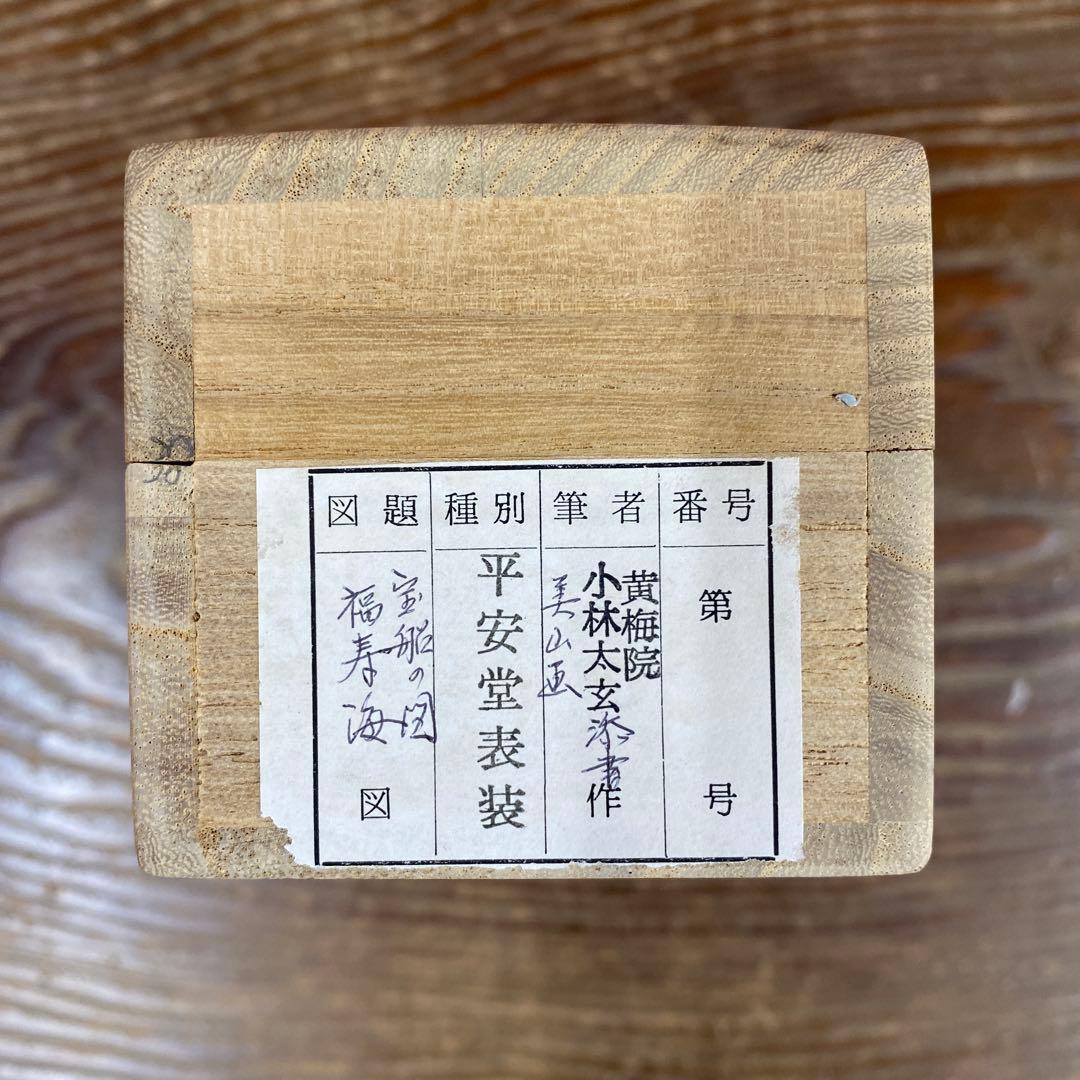 番号
第 号
筆者
黄梅院
小林太玄添書作
美山画
種別
平安堂表装
図題
宝船の図
福寿海
図